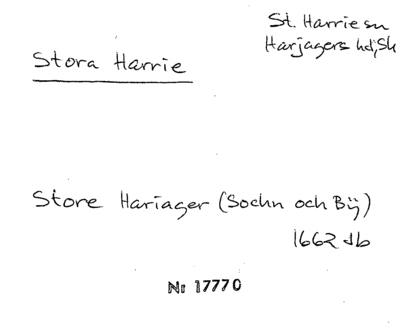 St. Harrie sn
Harjagers hd, Sk
Stora Harrie
Store Hariager (Sochn och Bÿ)
1662 Jb
Nr 17770